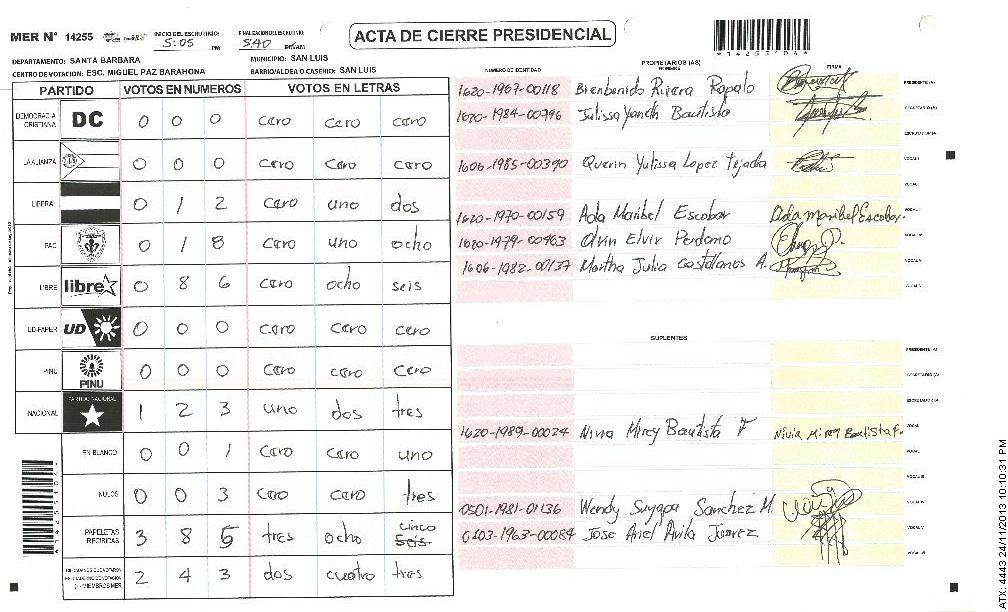 MER N° 14255
INICIO DEL ESCRUTINIO: 5:05 PM
FINALIZACION DEL ESCRUTINIO: 5:40
ACTA DE CIERRE PRESIDENCIAL
*14255104*
DEPARTAMENTO: SANTA BARBARA
MUNICIPIO: SAN LUIS
CENTRO DE VOTACION: ESC. MIGUEL PAZ BARAHONA
BARRIO/ALDEA O CASERIO: SAN LUIS
PARTIDO VOTOS EN NUMEROS VOTOS EN LETRAS
DEMOCRACIA CRISTIANA DC 0 0 0 cero cero cero
LA ALIANZA 0 0 0 cero cero cero
LIBERAL 0 1 2 cero uno dos
PAC 0 1 8 cero uno ocho
LIBRE libre 0 8 6 cero ocho seis
UD-FAPER UD 0 0 0 cero cero cero
PINU PINU 0 0 0 cero cero cero
NACIONAL PARTIDO NACIONAL 1 2 3 uno dos tres
EN BLANCO 0 0 1 cero cero uno
NULOS 0 0 3 cero cero tres
PAPELETAS RECIBIDAS 3 8 5 tres ocho cinco seis
2 4 3 dos cuatro tres
NUMERO DE IDENTIDAD
PROPIETARIOS (AS)
NOMBRE
FIRMA
1620-1967-00118 Bienbenido Rivera Rapalo PRESIDENTE (A)
1620-1984-00796 Julissa Yaneth Bautista SECRETARIO (A)
ESCRUTADOR (A)
1606-1985-00390 Querin Yulissa Lopez Tejada VOCAL I
1620-1970-00159 Ada Maribel Escobar Ada Maribel Escobar.
1620-1979-00463 Olvin Elvir Perdomo
1606-1982-00137 Martha Julia Castellanos A.
SUPLENTES
PRESIDENTE (A)
SECRETARIO (A)
ESCRUTADOR (A)
1620-1989-00024 Nivia Mirey Bautista F Nivia Mirey Bautista F.
0501-1981-01136 Wendy Suyapa Sanchez M.
0203-1963-00084 Jose Ariel Avila Juarez
ATX: 4443 24/11/2013 10:10:31 PM